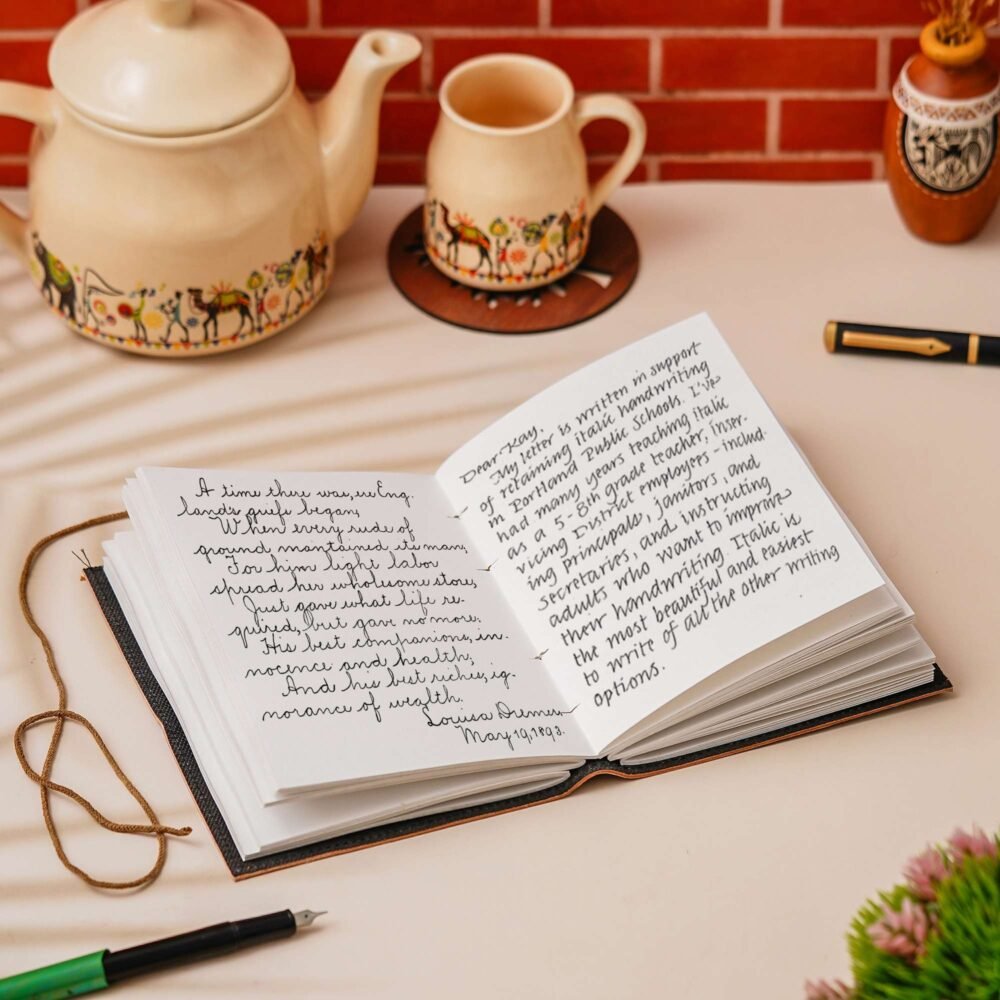 A time there was, ere Eng.
land's griefs began,
When every rude of
ground maintained its man;
For him light labor
spread her wholesome store,
Just gave what life re-
quired, but gave no more;
His best companions, in-
nocence and health;
And his best riches, ig-
norance of wealth.
Louisa Diemer
May 19, 1893.
Dear Kay,
My letter is written in support
of retaining italic handwriting
in Portland Public Schools. I've
had many years teaching italic
as a 5-8th grade teacher, inser-
vicing District employees - includ-
ing principals, janitors, and
secretaries, and instructing
adults who want to improve
their handwriting. Italic is
the most beautiful and easiest
to write of all the other writing
options.